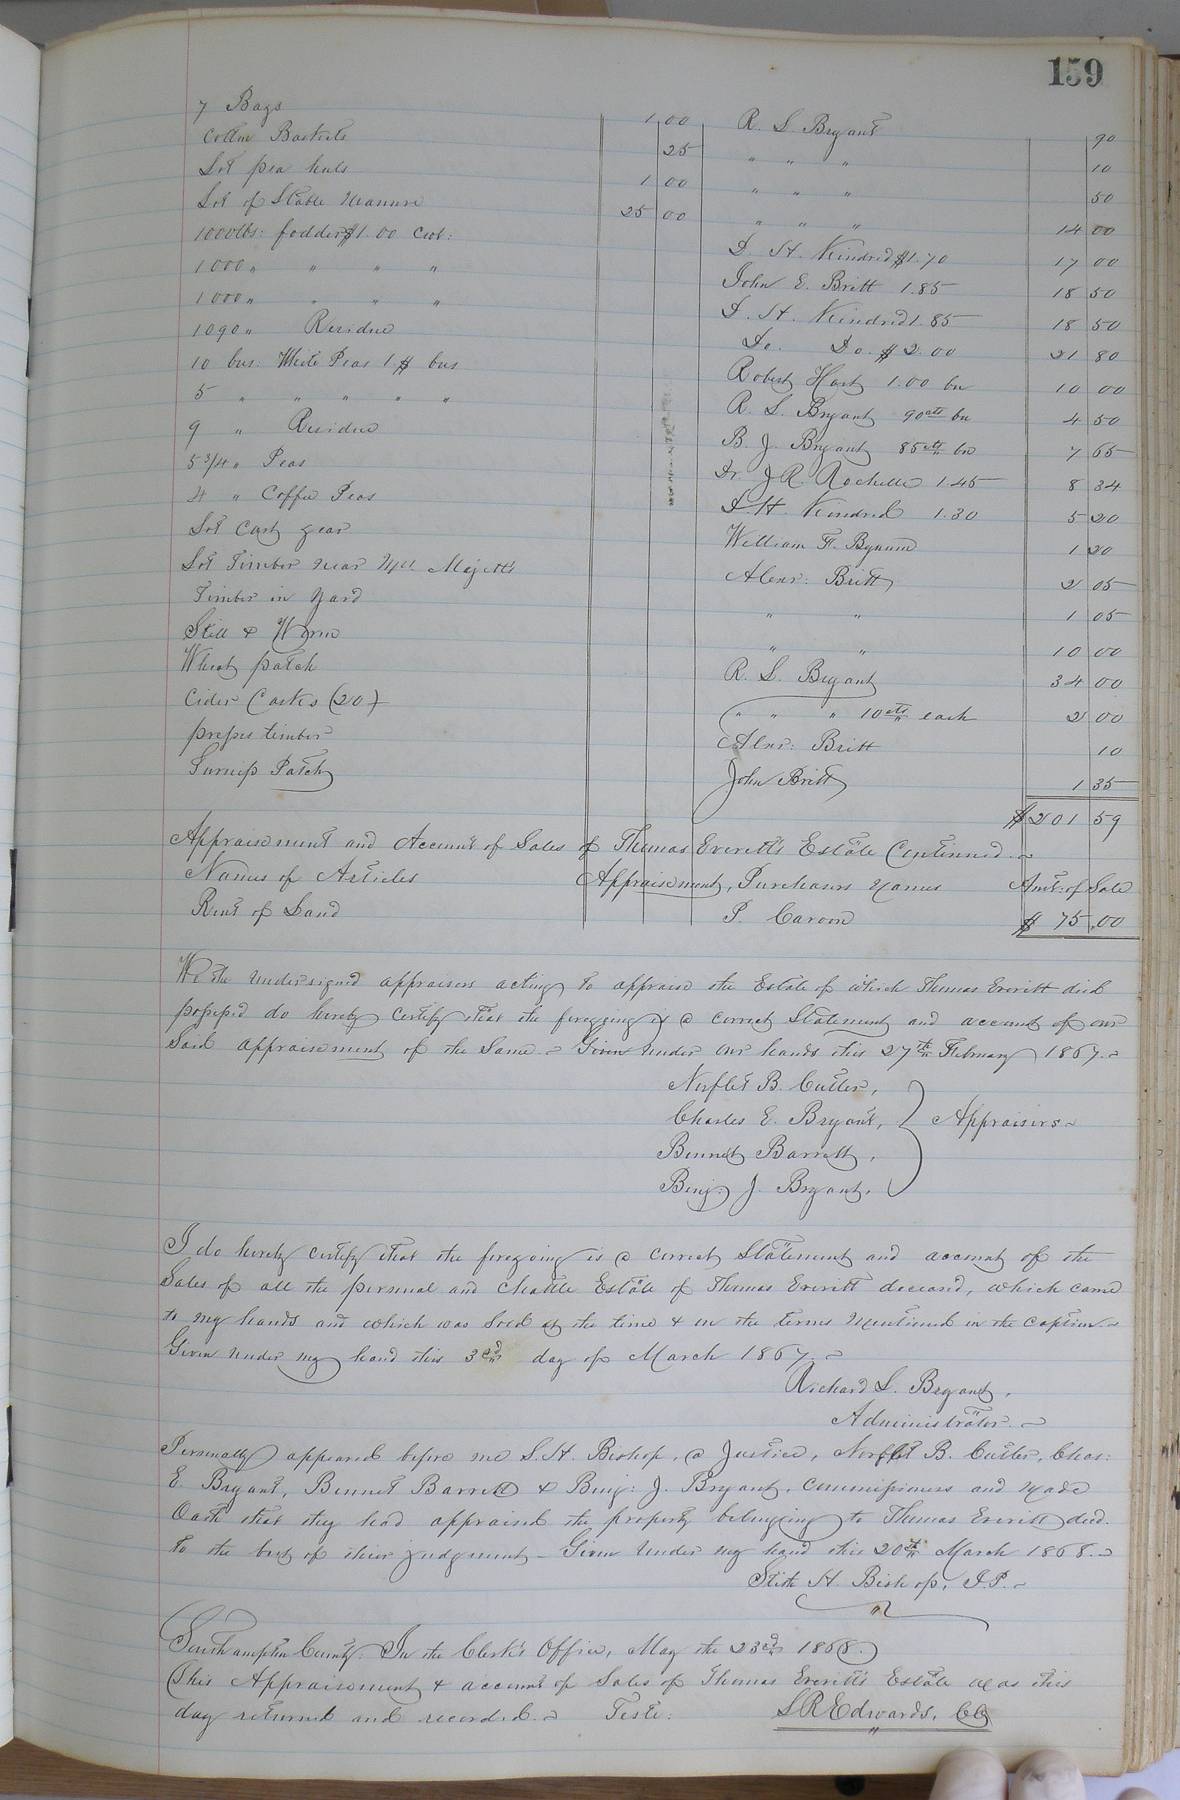 159
7 Bags 1 00 R. S. Bryant 90
Cotton Baskets 25 " " " 10
Lot pea huls 1 00 " " " 50
Lot of Stable Manure 25 00 " " " 14 00
1000 lbs: fodder $1.00 Cwt: D. H. Kindred $1.70 17 00
1000 " " " " John E. Britt 1.85 18 50
1000 " " " " D. H. Kindred 1.85 18 50
1090 " Residue Do. Do. $2.00 21 80
10 bus: White Peas 1 $ bus Robert Hart 1.00 bu 10 00
5 " " " " " R. S. Bryant 90cts bu 4 50
9 " Residue B. J. Bryant 85cts bu 7 65
5 3/4 " Peas Dr. J. R. Rochelle 1.45 8 34
4 " Coffee Peas D. H. Kindred 1.30 5 20
Lot Cart gear William F. Bynum 1 20
Lot Timber near Majetts Alexr: Britt 2 05
Timber in Yard " " 1 05
Still & Worm " " 10 00
Wheat patch R. S. Bryant 34 00
Cider Casks (20) " " " 10cts each 2 00
timber Alexr: Britt 10
Turnip Patch John Britt 1 35
$201 59
Appraisement and Account of Sales of Thomas Everett's Estate Continued.
Names of Articles Appraisement, Purchasers Names Amt: of Sale
Rent of Land P. $75.00
We the undersigned appraisers acting to appraise the Estate of which Thomas Everitt died
possess'd do hereby certify that the foregoing is a correct Statement and account of our
said appraisement of the Same. Given under our hands this 27th February 1867.
Norflet B. Cutler,
Charles E. Bryant, } Appraisers
Bennet Barrett,
Benj: J. Bryant.
I do hereby certify that the foregoing is a correct Statement and account of the
Sales of all the personal and chattle Estate of Thomas Everitt deceased, which came
to my hands and which was Sold at the time & on the terms mentioned in the caption
Given under my hand this 3rd day of March 1867.
Richard S. Bryant,
Administrator.
Personally appeared before me S. H. Bishop, a Justice, Norflet B. Cutler, Chas:
E. Bryant, Bennet Barrett & Benj: J. Bryant, commissioners and made
Oath that they had appraised the property belonging to Thomas Everitt decd.
to the best of their judgment - Given under my hand this 20th March 1868.
Stith H. Bishop, J.P.
Southampton County. In the Clerk's Office, May the 23rd 1868.
This Appraisement & account of Sales of Thomas Everitt's Estate was this
day returned and recorded. Teste: L R Edwards, CC